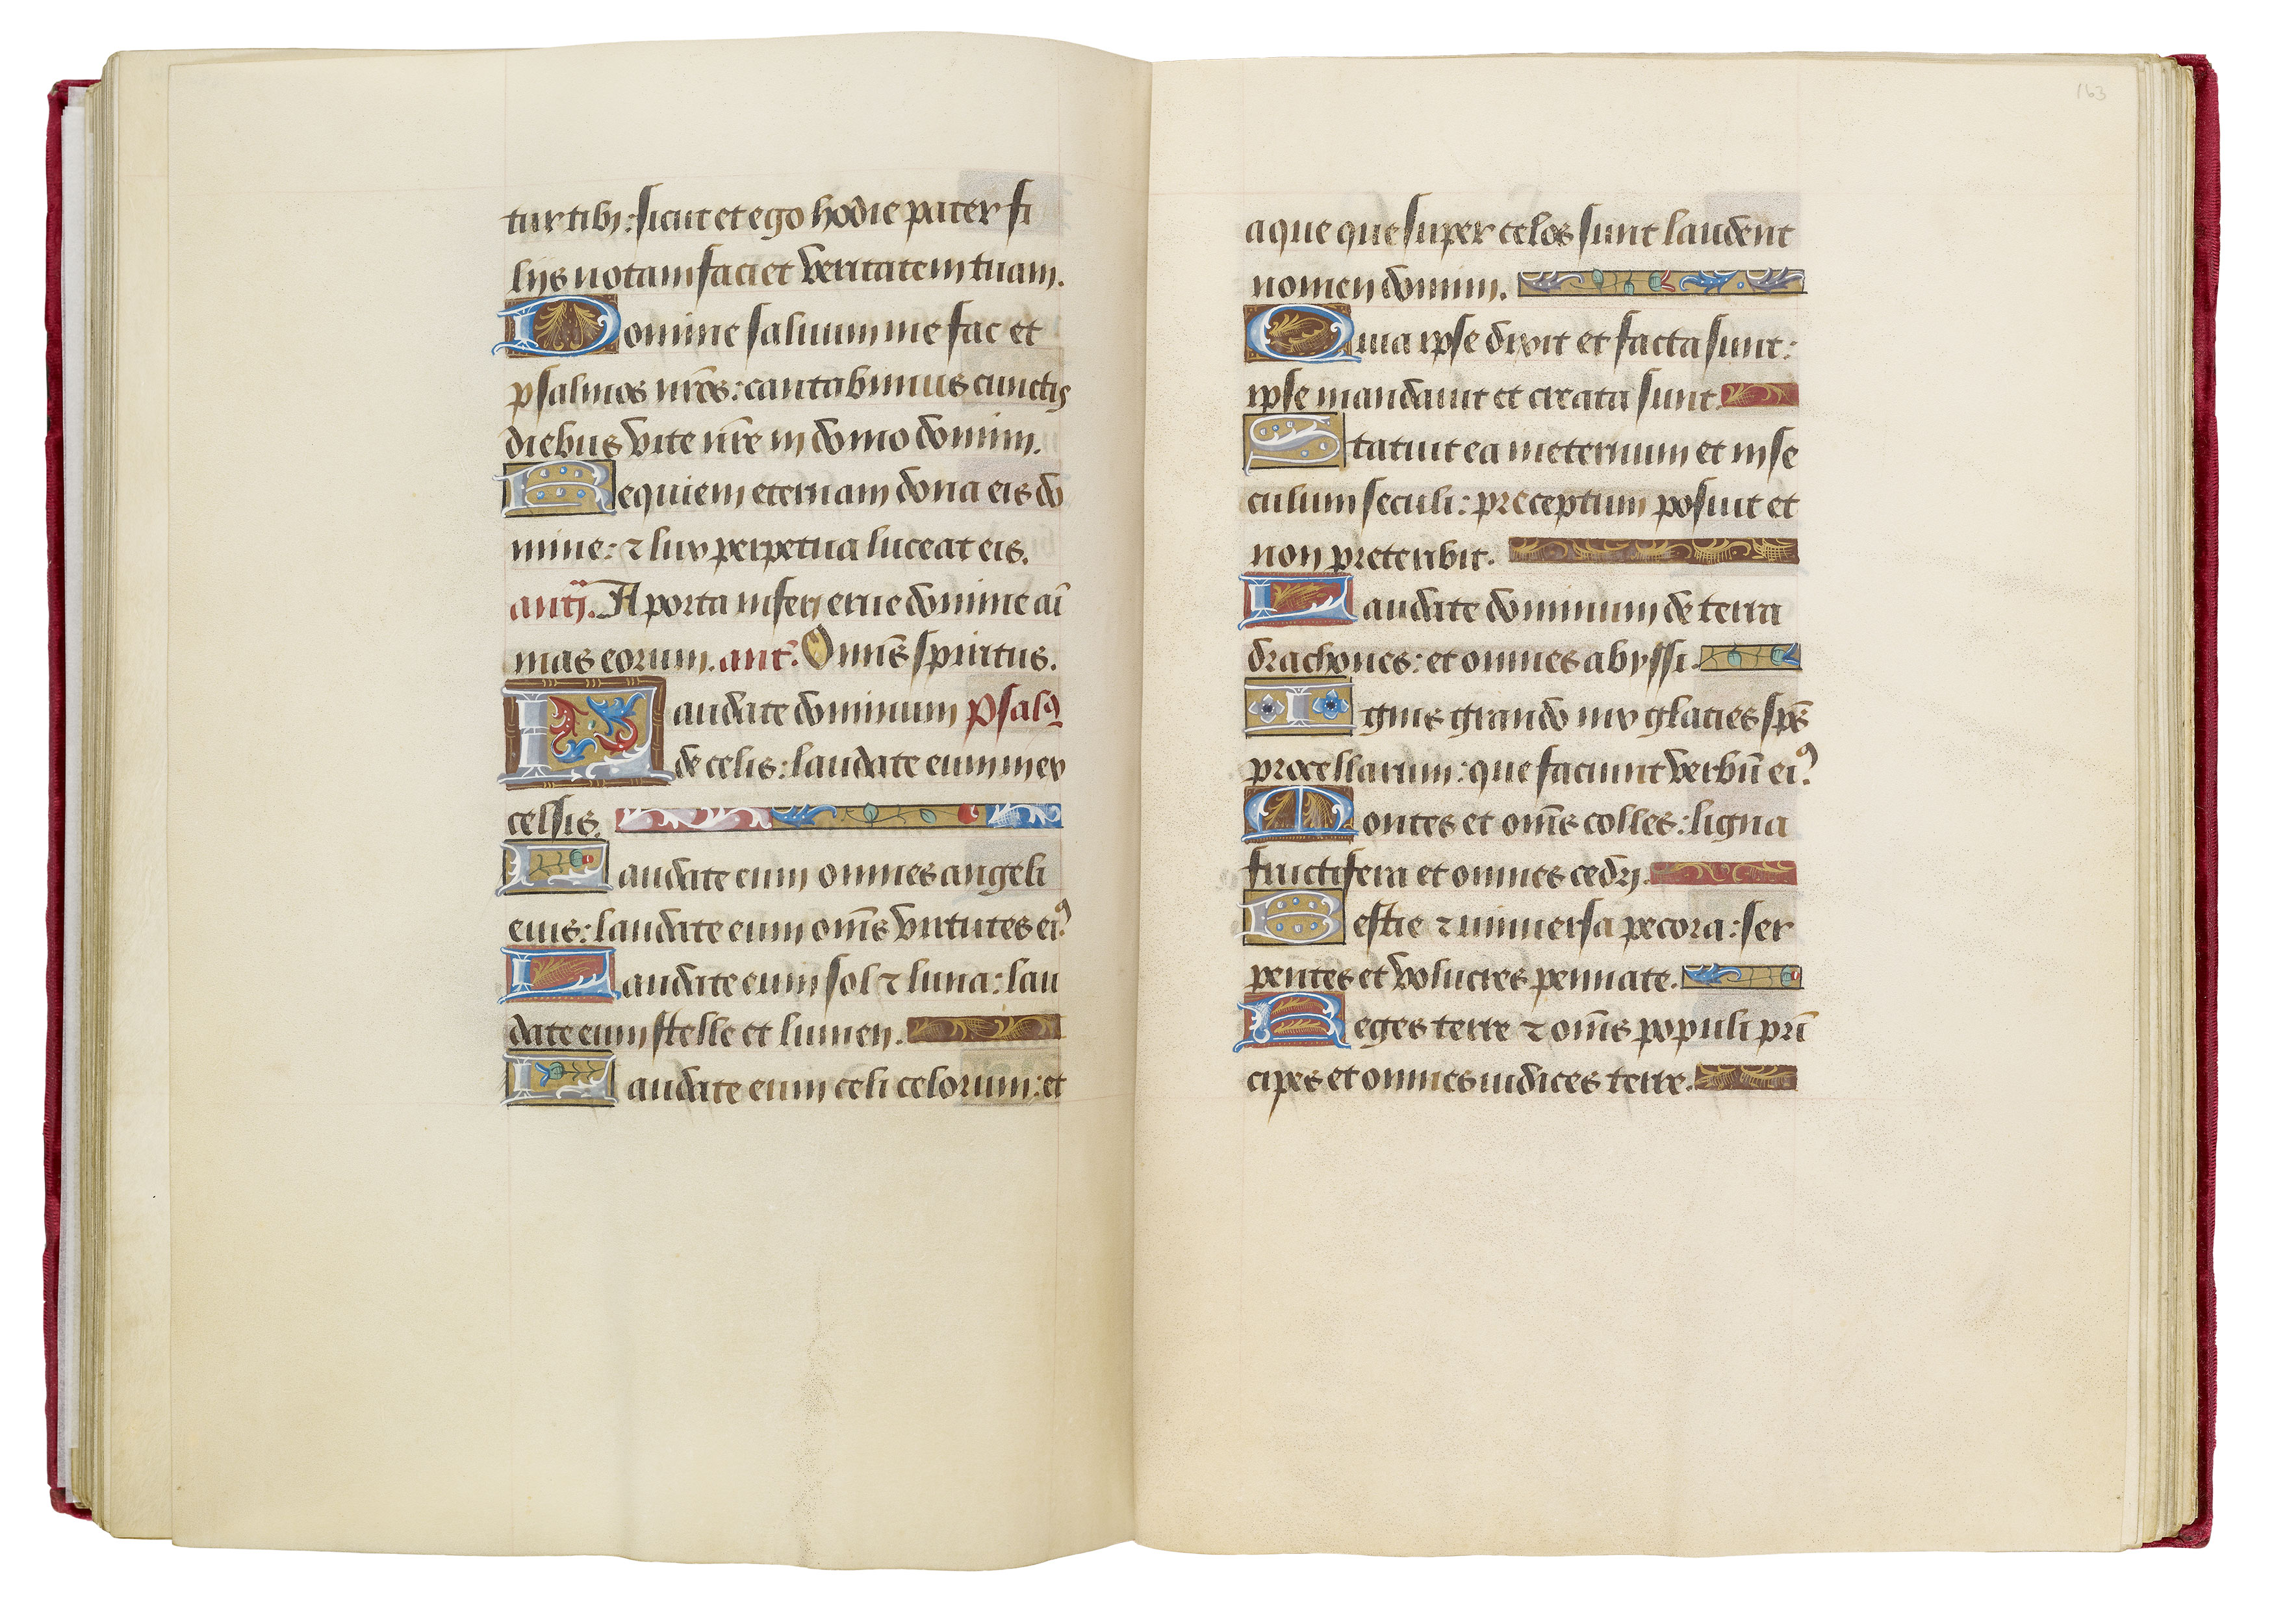 tur tibi: sicut et ego hodie pater fi
liis notam faciet veritatem tuam.
Domine saluum me fac et
psalmos nr̄os: cantabimus cunctis
diebus vite nr̄e in domo domini.
Requiem eternam dona eis do
mine: ⁊ lux perpetua luceat eis.
antȷ̄. A porta inferi erue domine aī
mas eorum. ant̄. Omn̄s spiritus.
Laudate dominum psalꝯ
de celis: laudate eum in ex
celsis.
Laudate eum omnes angeli
eius: laudate eum om̄s virtutes eiꝰ.
Laudate eum sol ⁊ luna: lau
date eum stelle et lumen.
Laudate eum celi celorum: et
163
aque que super celos sunt laudent
nomen domini.
Quia ipse dixit et facta sunt:
ipse mandauit et creata sunt.
Statuit ea in eternum et in se
culum seculi: preceptum posuit et
non preteribit.
Laudate dominum de terra
drachones: et omnes abyssi.
Ignis grando nix glacies sp̄s
procellarum: que faciunt verbū eiꝰ.
Montes et om̄s colles: ligna
fructifera et omnes cedri.
Bestie ⁊ uniuersa pecora: ser
pentes et volucres pennate.
Reges terre ⁊ om̄s populi prī
cipes et omnes iudices terre.